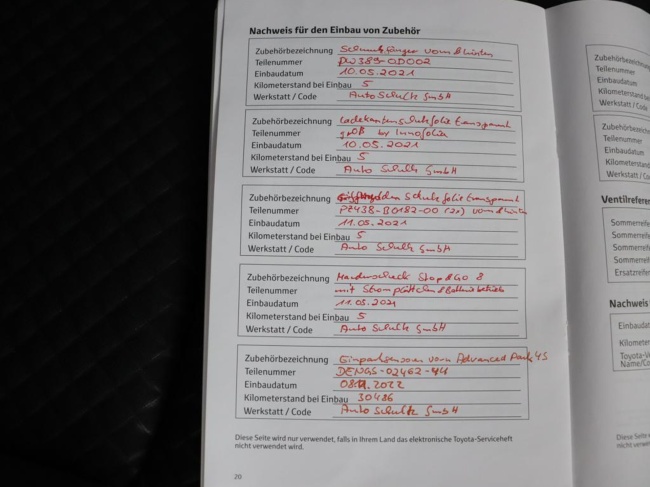 Nachweis für den Einbau von Zubehör
Zubehörbezeichnung Schmutzfänger vorn & hinten
Teilenummer PW389-0D002
Einbaudatum 10.05.2021
Kilometerstand bei Einbau 5
Werkstatt / Code Auto Schultz GmbH
Zubehörbezeichnung Ladekantenschutzfolie transparent
Teilenummer groß by Innofolie
Einbaudatum 10.05.2021
Kilometerstand bei Einbau 5
Werkstatt / Code Auto Schultz GmbH
Zubehörbezeichnung Schutzfolie transparent
Teilenummer PZ438-B0182-00 (2x) vorn & hinten
Einbaudatum 11.05.2021
Kilometerstand bei Einbau 5
Werkstatt / Code Auto Schultz GmbH
Zubehörbezeichnung Marderschutz Stop & GO 8
Teilenummer mit Stromplättchen & Batteriebetrieb
Einbaudatum 11.05.2021
Kilometerstand bei Einbau 5
Werkstatt / Code Auto Schultz GmbH
Zubehörbezeichnung Einparksensoren vorn Advanced Park 4S
Teilenummer DENGS-02462-44
Einbaudatum 08.11.2022
Kilometerstand bei Einbau 30486
Werkstatt / Code Auto Schultz GmbH
Diese Seite wird nur verwendet, falls in Ihrem Land das elektronische Toyota-Serviceheft
nicht verwendet wird.
20
Teilenummer
Einbaudatum
Werkstatt / C
Teilenummer
Einbaudatum
Ventilreferen
Sommerreife
Sommerreife
Sommerreife
Sommerreife
Ersatzreifen
Nachweis
Einbaudat
Kilometer
Toyota-V
Name/Co
Diese Seit
nicht verw